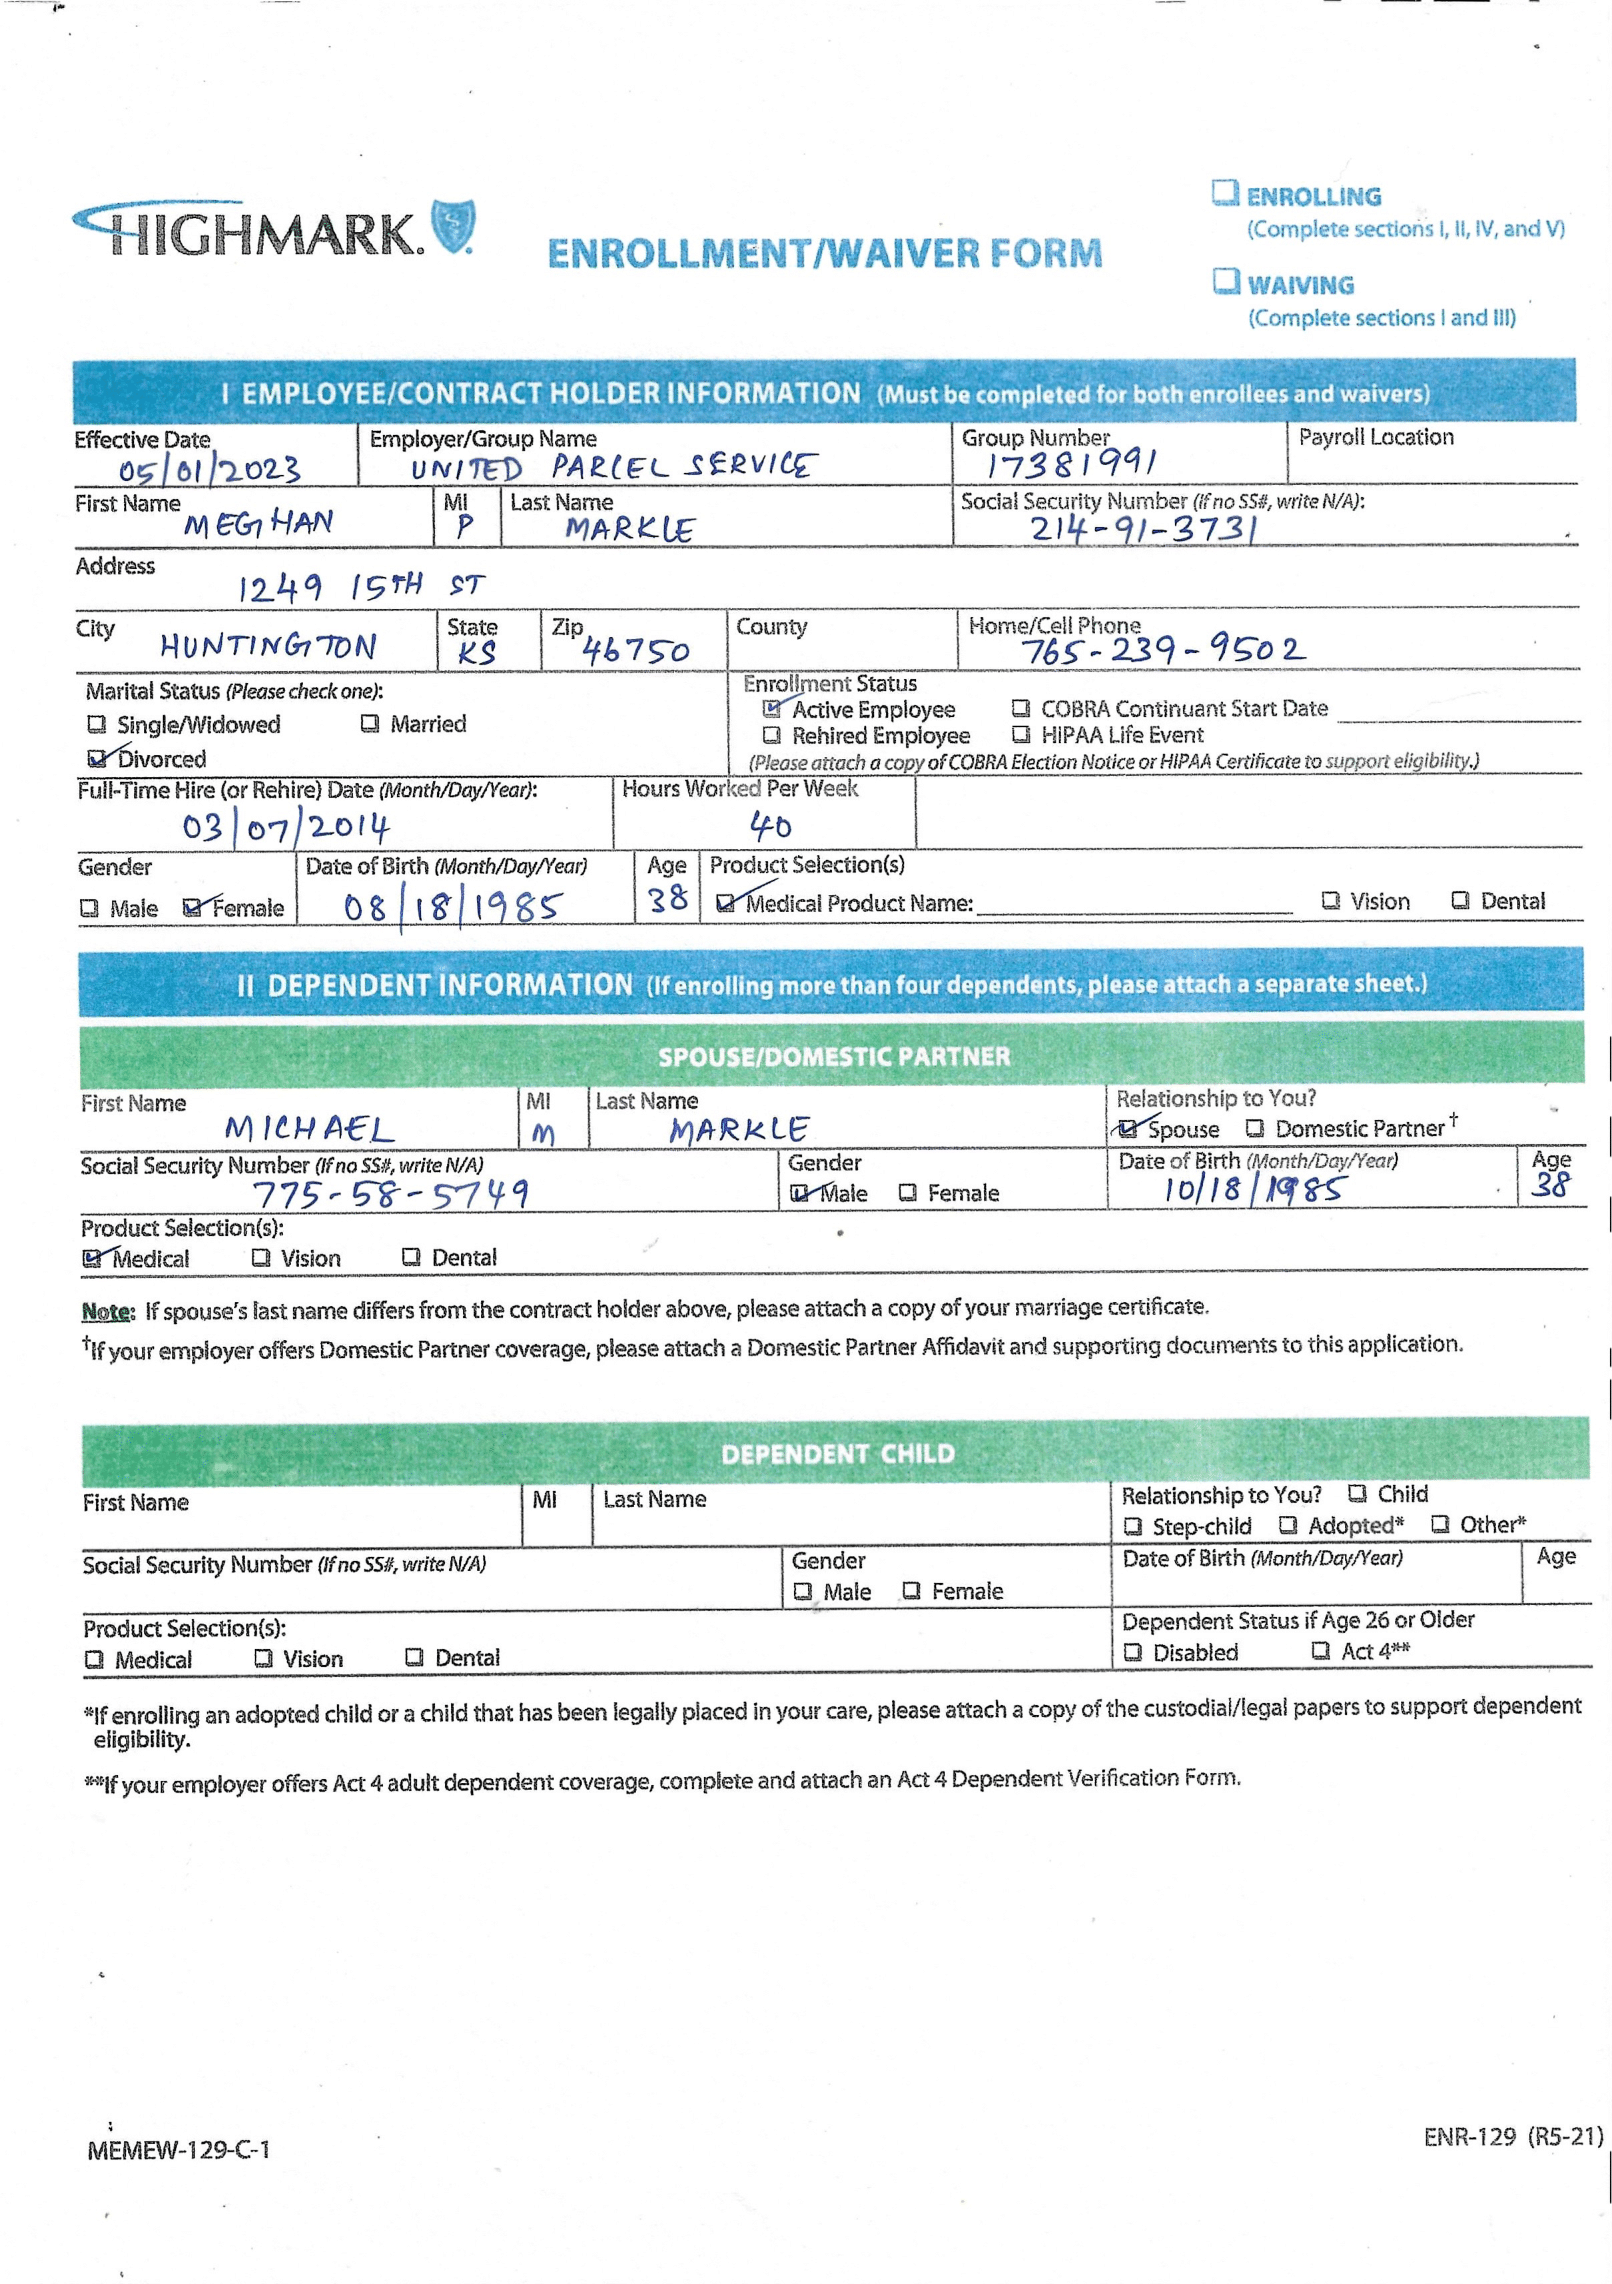 HIGHMARK.
ENROLLMENT/WAIVER FORM
ENROLLING
(Complete sections I, II, IV, and V)
WAIVING
(Complete sections I and III)
I EMPLOYEE/CONTRACT HOLDER INFORMATION (Must be completed for both enrollees and waivers)
Effective Date Employer/Group Name Group Number Payroll Location
05/01/2023 UNITED PARCEL SERVICE 17381991
First Name MI Last Name Social Security Number (If no SS#, write N/A):
MEGHAN P MARKLE 214-91-3731
Address
1249 15TH ST
City State Zip County Home/Cell Phone
HUNTINGTON KS 46750 765-239-9502
Marital Status (Please check one): Enrollment Status
Single/Widowed Married Active Employee COBRA Continuant Start Date
Divorced Rehired Employee HIPAA Life Event
(Please attach a copy of COBRA Election Notice or HIPAA Certificate to support eligibility.)
Full-Time Hire (or Rehire) Date (Month/Day/Year): Hours Worked Per Week
03/07/2014 40
Gender Date of Birth (Month/Day/Year) Age Product Selection(s)
Male Female 08/18/1985 38 Medical Product Name: Vision Dental
II DEPENDENT INFORMATION (If enrolling more than four dependents, please attach a separate sheet.)
SPOUSE/DOMESTIC PARTNER
First Name MI Last Name Relationship to You?
MICHAEL M MARKLE Spouse Domestic Partner†
Social Security Number (If no SS#, write N/A) Gender Date of Birth (Month/Day/Year) Age
775-58-5749 Male Female 10/18/1985 38
Product Selection(s):
Medical Vision Dental
Note: If spouse's last name differs from the contract holder above, please attach a copy of your marriage certificate.
†If your employer offers Domestic Partner coverage, please attach a Domestic Partner Affidavit and supporting documents to this application.
DEPENDENT CHILD
First Name MI Last Name Relationship to You? Child
Step-child Adopted* Other*
Social Security Number (If no SS#, write N/A) Gender Date of Birth (Month/Day/Year) Age
Male Female
Product Selection(s): Dependent Status if Age 26 or Older
Medical Vision Dental Disabled Act 4**
*If enrolling an adopted child or a child that has been legally placed in your care, please attach a copy of the custodial/legal papers to support dependent
eligibility.
**If your employer offers Act 4 adult dependent coverage, complete and attach an Act 4 Dependent Verification Form.
MEMEW-129-C-1 ENR-129 (R5-21)